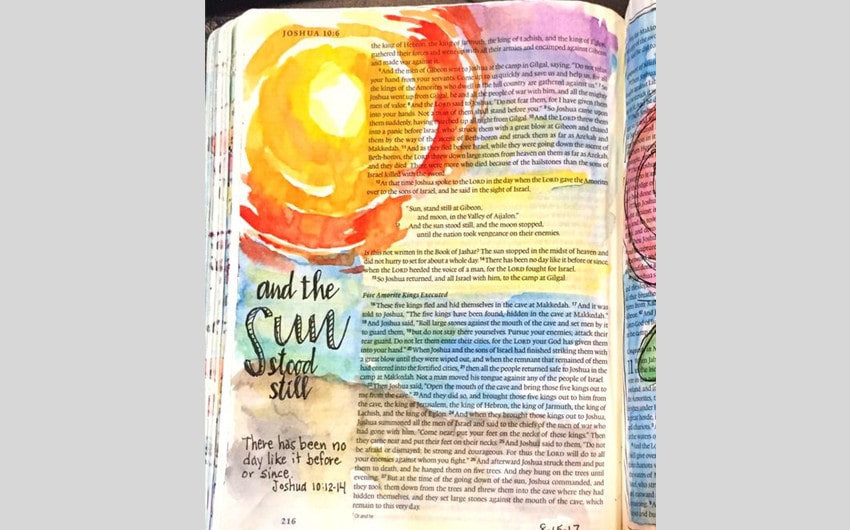 JOSHUA 10:6
the king of Hebron, the king of Jarmuth, the king of Lachish, and the king of Eglon,
gathered their forces and went up with all their armies and encamped against Gibeon
and made war against it.
⁶And the men of Gibeon sent to Joshua at the camp in Gilgal, saying, "Do not relax
your hand from your servants. Come up to us quickly and save us and help us, for all
the kings of the Amorites who dwell in the hill country are gathered against us." ⁷So
Joshua went up from Gilgal, he and all the people of war with him, and all the mighty
men of valor. ⁸And the LORD said to Joshua, "Do not fear them, for I have given them
into your hands. Not a man of them shall stand before you." ⁹So Joshua came upon
them suddenly, having marched up all night from Gilgal. ¹⁰And the LORD threw them
into a panic before Israel, who struck them with a great blow at Gibeon and chased
them by the way of the ascent of Beth-horon and struck them as far as Azekah and
Makkedah. ¹¹And as they fled before Israel, while they were going down the ascent of
Beth-horon, the LORD threw down large stones from heaven on them as far as Azekah,
and they died. There were more who died because of the hailstones than the sons of
Israel killed with the sword.
¹²At that time Joshua spoke to the LORD in the day when the LORD gave the Amorites
over to the sons of Israel, and he said in the sight of Israel,
"Sun, stand still at Gibeon,
and moon, in the Valley of Aijalon."
¹³And the sun stood still, and the moon stopped,
until the nation took vengeance on their enemies.
Is this not written in the Book of Jashar? The sun stopped in the midst of heaven and
did not hurry to set for about a whole day. ¹⁴There has been no day like it before or since,
when the LORD heeded the voice of a man, for the LORD fought for Israel.
¹⁵So Joshua returned, and all Israel with him, to the camp at Gilgal.
Five Amorite Kings Executed
¹⁶These five kings fled and hid themselves in the cave at Makkedah. ¹⁷And it was
told to Joshua, "The five kings have been found, hidden in the cave at Makkedah."
¹⁸And Joshua said, "Roll large stones against the mouth of the cave and set men by it
to guard them, ¹⁹but do not stay there yourselves. Pursue your enemies; attack their
rear guard. Do not let them enter their cities, for the LORD your God has given them
into your hand." ²⁰When Joshua and the sons of Israel had finished striking them with
a great blow until they were wiped out, and when the remnant that remained of them
had entered into the fortified cities, ²¹then all the people returned safe to Joshua in the
camp at Makkedah. Not a man moved his tongue against any of the people of Israel.
²²Then Joshua said, "Open the mouth of the cave and bring those five kings out to
me from the cave." ²³And they did so, and brought those five kings out to him from
the cave, the king of Jerusalem, the king of Hebron, the king of Jarmuth, the king of
Lachish, and the king of Eglon. ²⁴And when they brought those kings out to Joshua,
Joshua summoned all the men of Israel and said to the chiefs of the men of war who
had gone with him, "Come near; put your feet on the necks of these kings." Then
they came near and put their feet on their necks. ²⁵And Joshua said to them, "Do not
be afraid or dismayed; be strong and courageous. For thus the LORD will do to all
your enemies against whom you fight." ²⁶And afterward Joshua struck them and put
them to death, and he hanged them on five trees. And they hung on the trees until
evening. ²⁷But at the time of the going down of the sun, Joshua commanded, and
they took them down from the trees and threw them into the cave where they had
hidden themselves, and they set large stones against the mouth of the cave, which
remain to this very day.
and the
Sun
stood
still
There has been no
day like it before
or since.
Joshua 10:12-14
216
8-15-17